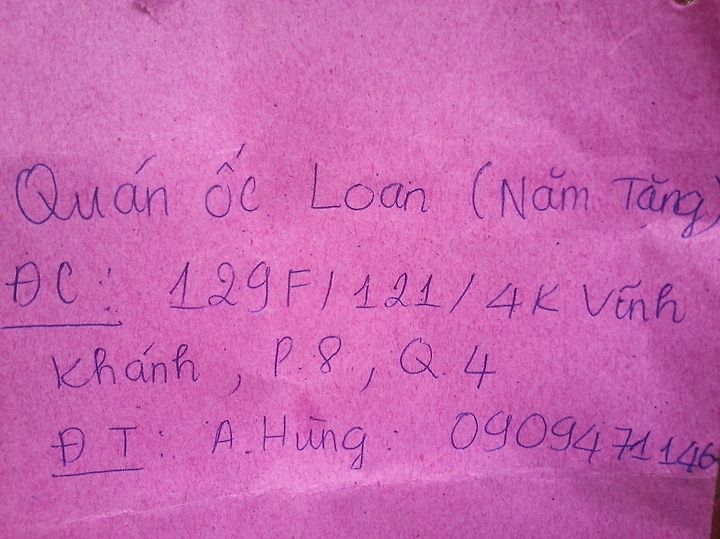 Quán ốc Loan (Năm Tặng)
ĐC: 129F/121/4K Vĩnh
Khánh, P.8, Q.4
ĐT: A.Hùng: 0909471146